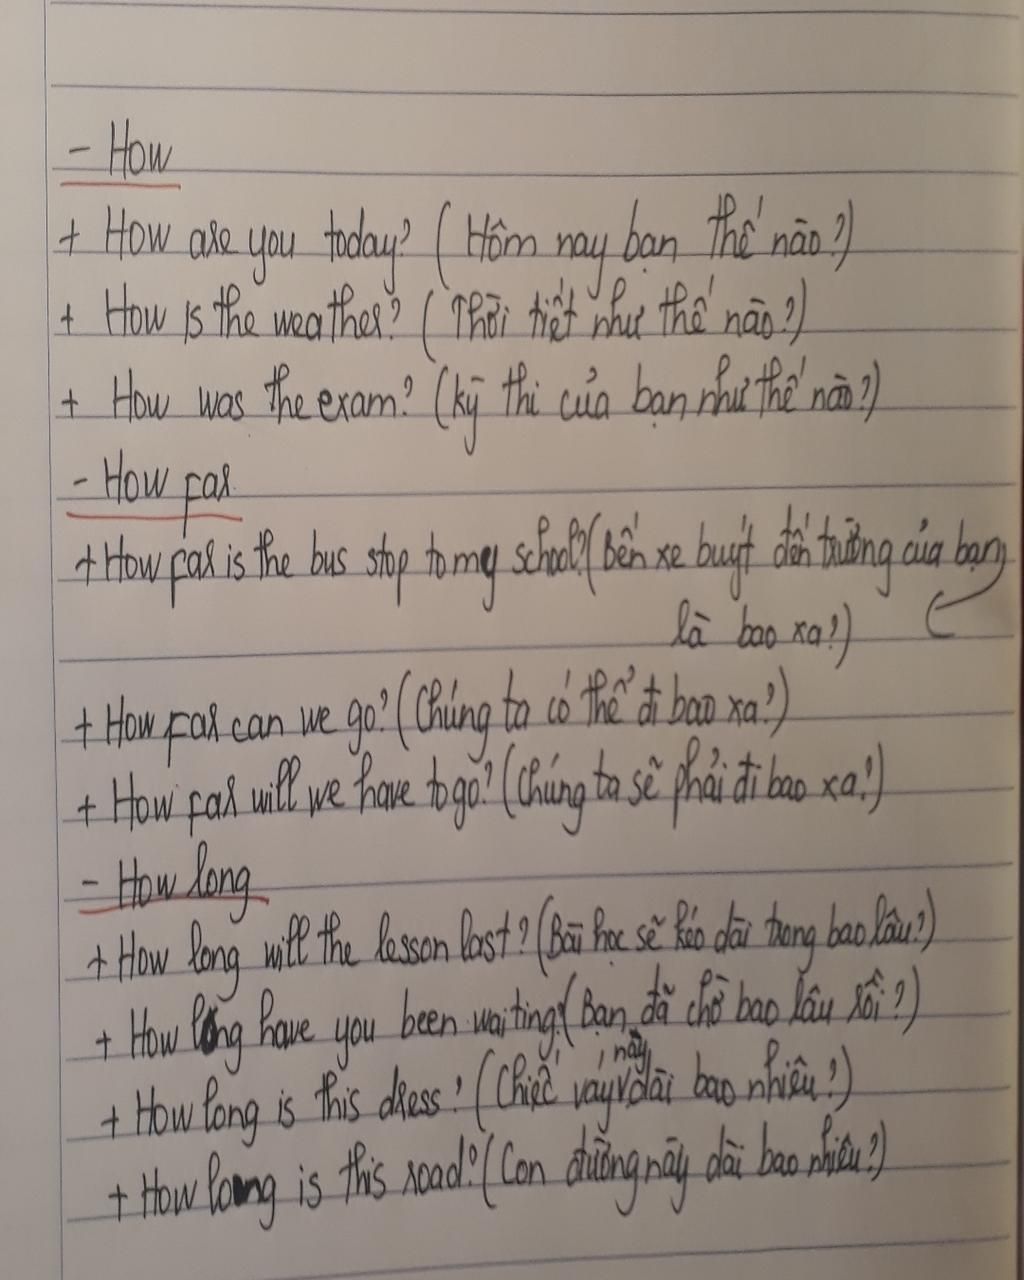 - How
+ How are you today? (Hôm nay bạn thế nào?)
+ How is the weather? (Thời tiết như thế nào?)
+ How was the exam? (kỳ thi của bạn như thế nào?)
- How far
+ How far is the bus stop to my school? (Bến xe buýt đến trường của bạn
là bao xa?)
+ How far can we go? (Chúng ta có thể đi bao xa?)
+ How far will we have to go? (Chúng ta sẽ phải đi bao xa?)
- How long
+ How long will the lesson last? (Bài học sẽ kéo dài trong bao lâu?)
+ How long have you been waiting? (Bạn đã chờ bao lâu rồi?)
+ How long is this dress? (Chiếc váy này dài bao nhiêu?)
+ How long is this road? (Con đường này dài bao nhiêu?)